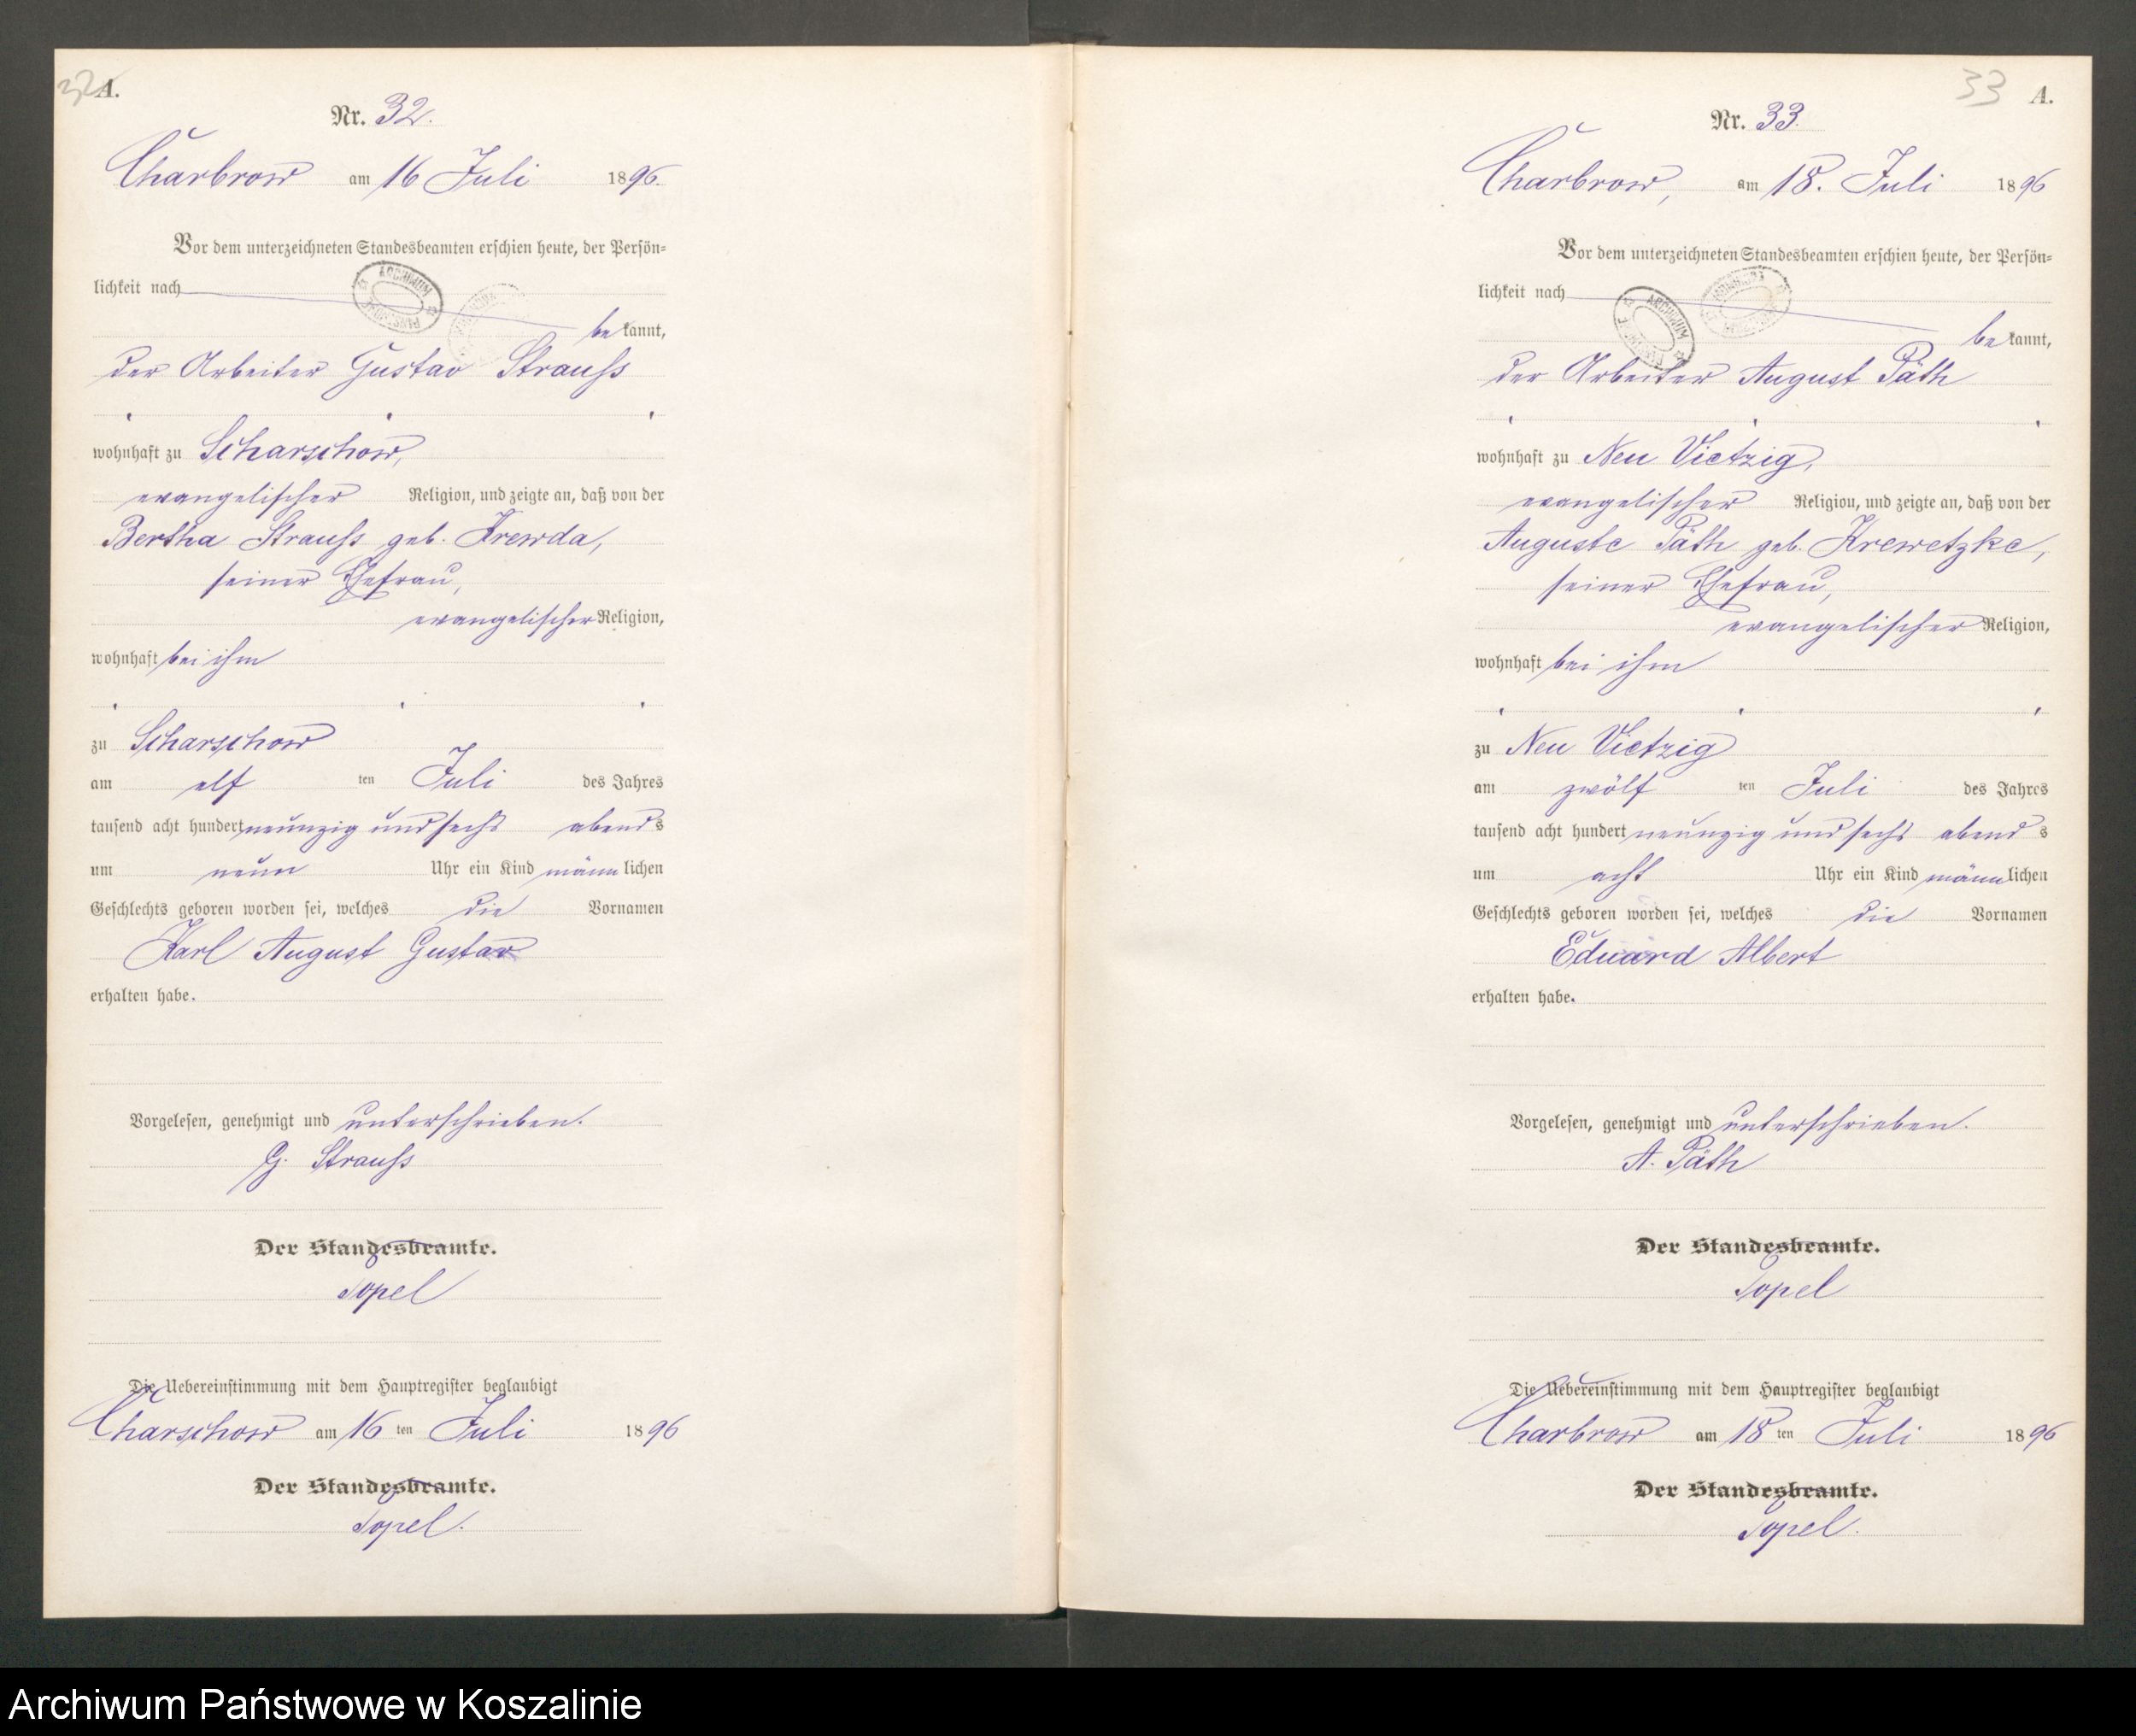 32 A.
Nr. 32.
Charbrow am 16 Juli 1896.
Vor dem unterzeichneten Standesbeamten erschien heute, der Persön-
lichkeit nach
bekannt,
der Arbeiter Gustav Strauß
wohnhaft zu Scharschow,
evangelischer Religion, und zeigte an, daß von der
Bertha Strauß geb. Krewda,
seiner Ehefrau,
evangelischer Religion,
wohnhaft bei ihm
zu Scharschow
am elf ten Juli des Jahres
tausend acht hundert neunzig und sechs abends
um neun Uhr ein Kind männlichen
Geschlechts geboren worden sei, welches die Vornamen
Karl August Gustav
erhalten habe.
Vorgelesen, genehmigt und unterschrieben.
G. Strauß
Der Standesbeamte.
Topel
Die Uebereinstimmung mit dem Hauptregister beglaubigt
Charschow am 16 ten Juli 1896
Der Standesbeamte.
Topel.
33 A.
Nr. 33.
Charbrow, am 18. Juli 1896
Vor dem unterzeichneten Standesbeamten erschien heute, der Persön-
lichkeit nach
bekannt,
der Arbeiter August Päth
wohnhaft zu Neu Vietzig,
evangelischer Religion, und zeigte an, daß von der
Auguste Päth geb. Krewetzke,
seiner Ehefrau,
evangelischer Religion,
wohnhaft bei ihm
zu Neu Vietzig
am zwölf ten Juli des Jahres
tausend acht hundert neunzig und sechs abends
um acht Uhr ein Kind männlichen
Geschlechts geboren worden sei, welches die Vornamen
Eduard Albert
erhalten habe.
Vorgelesen, genehmigt und unterschrieben.
A. Päth
Der Standesbeamte.
Topel
Die Uebereinstimmung mit dem Hauptregister beglaubigt
Charbrow am 18 ten Juli 1896
Der Standesbeamte.
Topel.
Archiwum Państwowe w Koszalinie